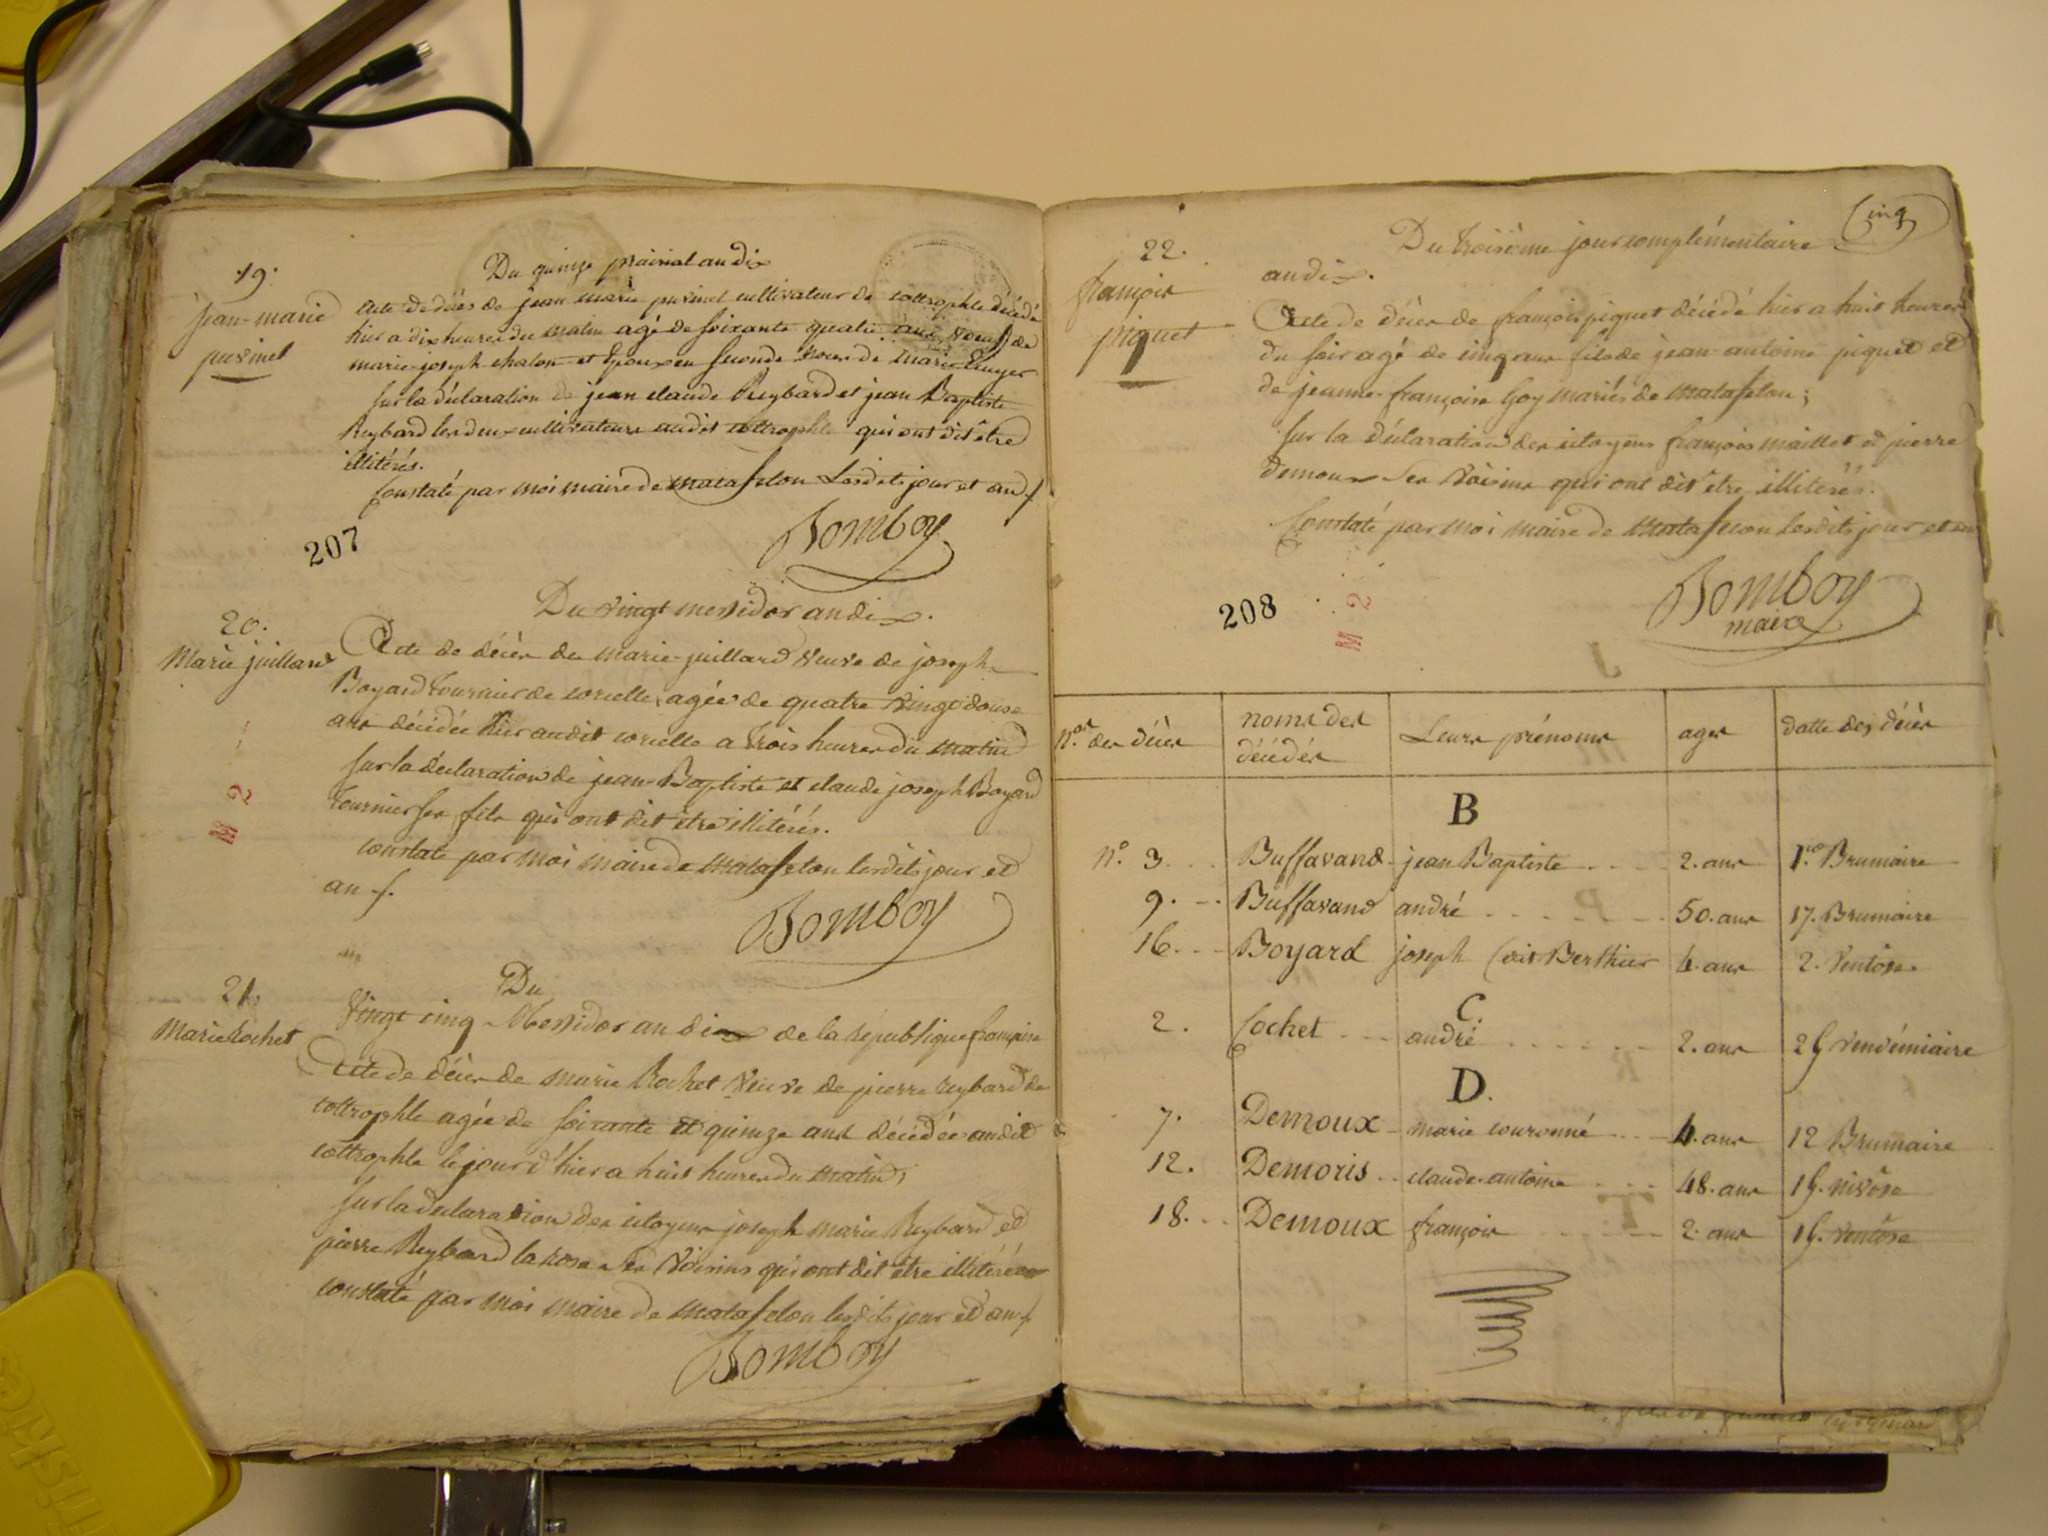 19.
jean-marie
puvinel
Du quinze prairial an dix
acte de décès de jean marie puvinel cultivateur de cottrophle décédé
hier a dix heures du matin agé de soixante quatre ans veuf de
marie joseph chalon et Epoux en seconde noces de marie
sur la déclaration de jean claude Reybard et jean Baptiste
Reybard les deux cultivateurs audit cottrophle qui ont dit être
illitérés.
Constaté par moi maire de matafelon lesdits jour et an
Bomboy
207
20.
Marie juillard
Du vingt messidor an dix.
Acte de décès de marie juillard veuve de joseph
Boyard tournier de corcelle, agée de quatre vingt douse
ans décédée hier audit corcelle a trois heures du matin
sur la déclaration de jean-Baptiste et claude joseph Boyard
tournier ses fils qui ont dit être illitérés.
constaté par moi maire de matafelon lesdits jour et
an
Bomboy
M 2
21.
Marie Rochet
Du
Vingt cinq Messidor an dix de la république française
Acte de décès de marie Rochet veuve de pierre reybard de
cottrophle agée de soixante et quinze ans décédée audit
cottrophle le jour d'hier a huit heures du matin;
sur la déclaration des citoyens joseph marie Reybard et
pierre Reybard larose ses voisins qui ont dit être illitérés
constaté par moi maire de matafelon lesdits jour et an
Bomboy
Cinq
22.
françois
piquet
Du troisième jour complémentaire
an dix.
Acte de décès de françois piquet décédé hier a huit heures
du soir agé de cinq ans fils de jean antoine piquet et
de jeanne françoise Goy mariés de matafelon;
sur la déclaration des citoyens françois maillet et pierre
demoux ses voisins qui ont dit être illitérés.
Constaté par moi maire de matafelon lesdits jour et an
Bomboy
maire
208
M 2
n.os des décès noms des décédés Leurs prénoms ages datte des décès
B
n.o 3. Buffavand jean Baptiste 2. ans 1.er Brumaire
9. Buffavand andré 50. ans 17. Brumaire
16. Boyard joseph (dit Berthier 4. ans 2. Ventôse
C.
2. Cochet andré 2. ans 29 vendémiaire
D.
7. Demoux marie couronné 4. ans 12 Brumaire
12. Demoris claude-antoine 48. ans 19. nivôse
18. Demoux françois 2. ans 19. ventôse